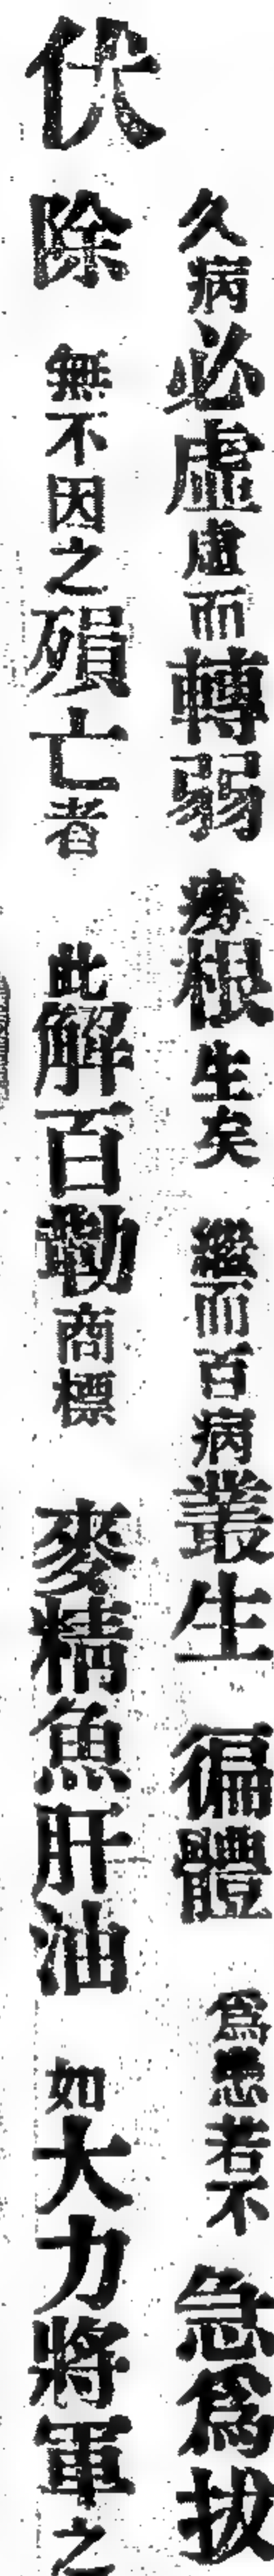 久病必虛虛而轉弱癆根生矣繼而百病叢生徧體爲患若不急爲拔
伏除無不因之殞亡者此解百勒商標麥精魚肝油如大力將軍之